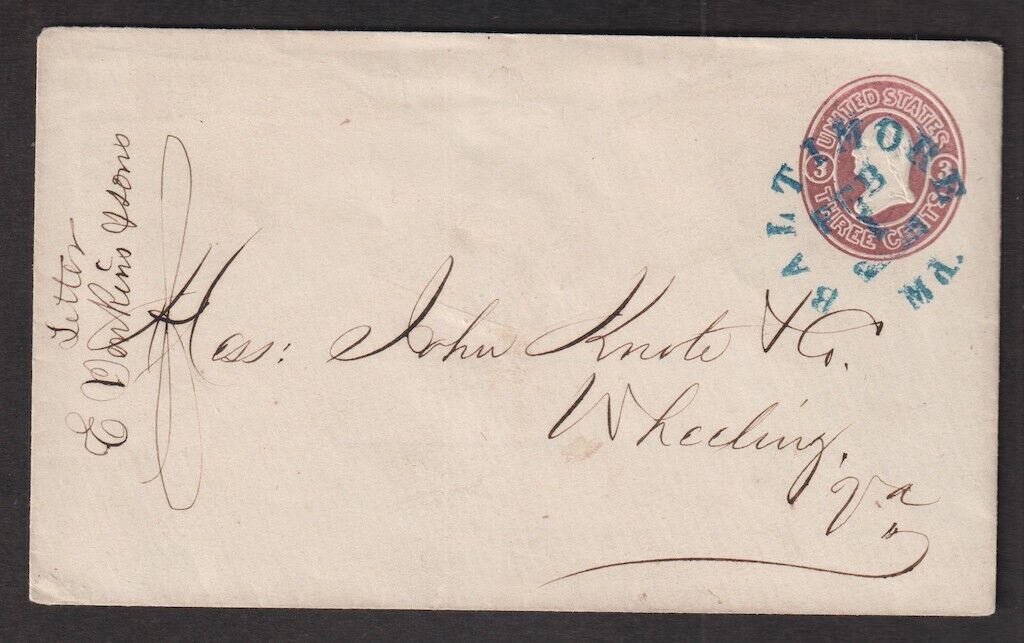 UNITED STATES
3 3
THREE CENTS
BALTIMORE Md.
Mess: John Knote & Co.
Wheeling,
Va
Letter
& Sons